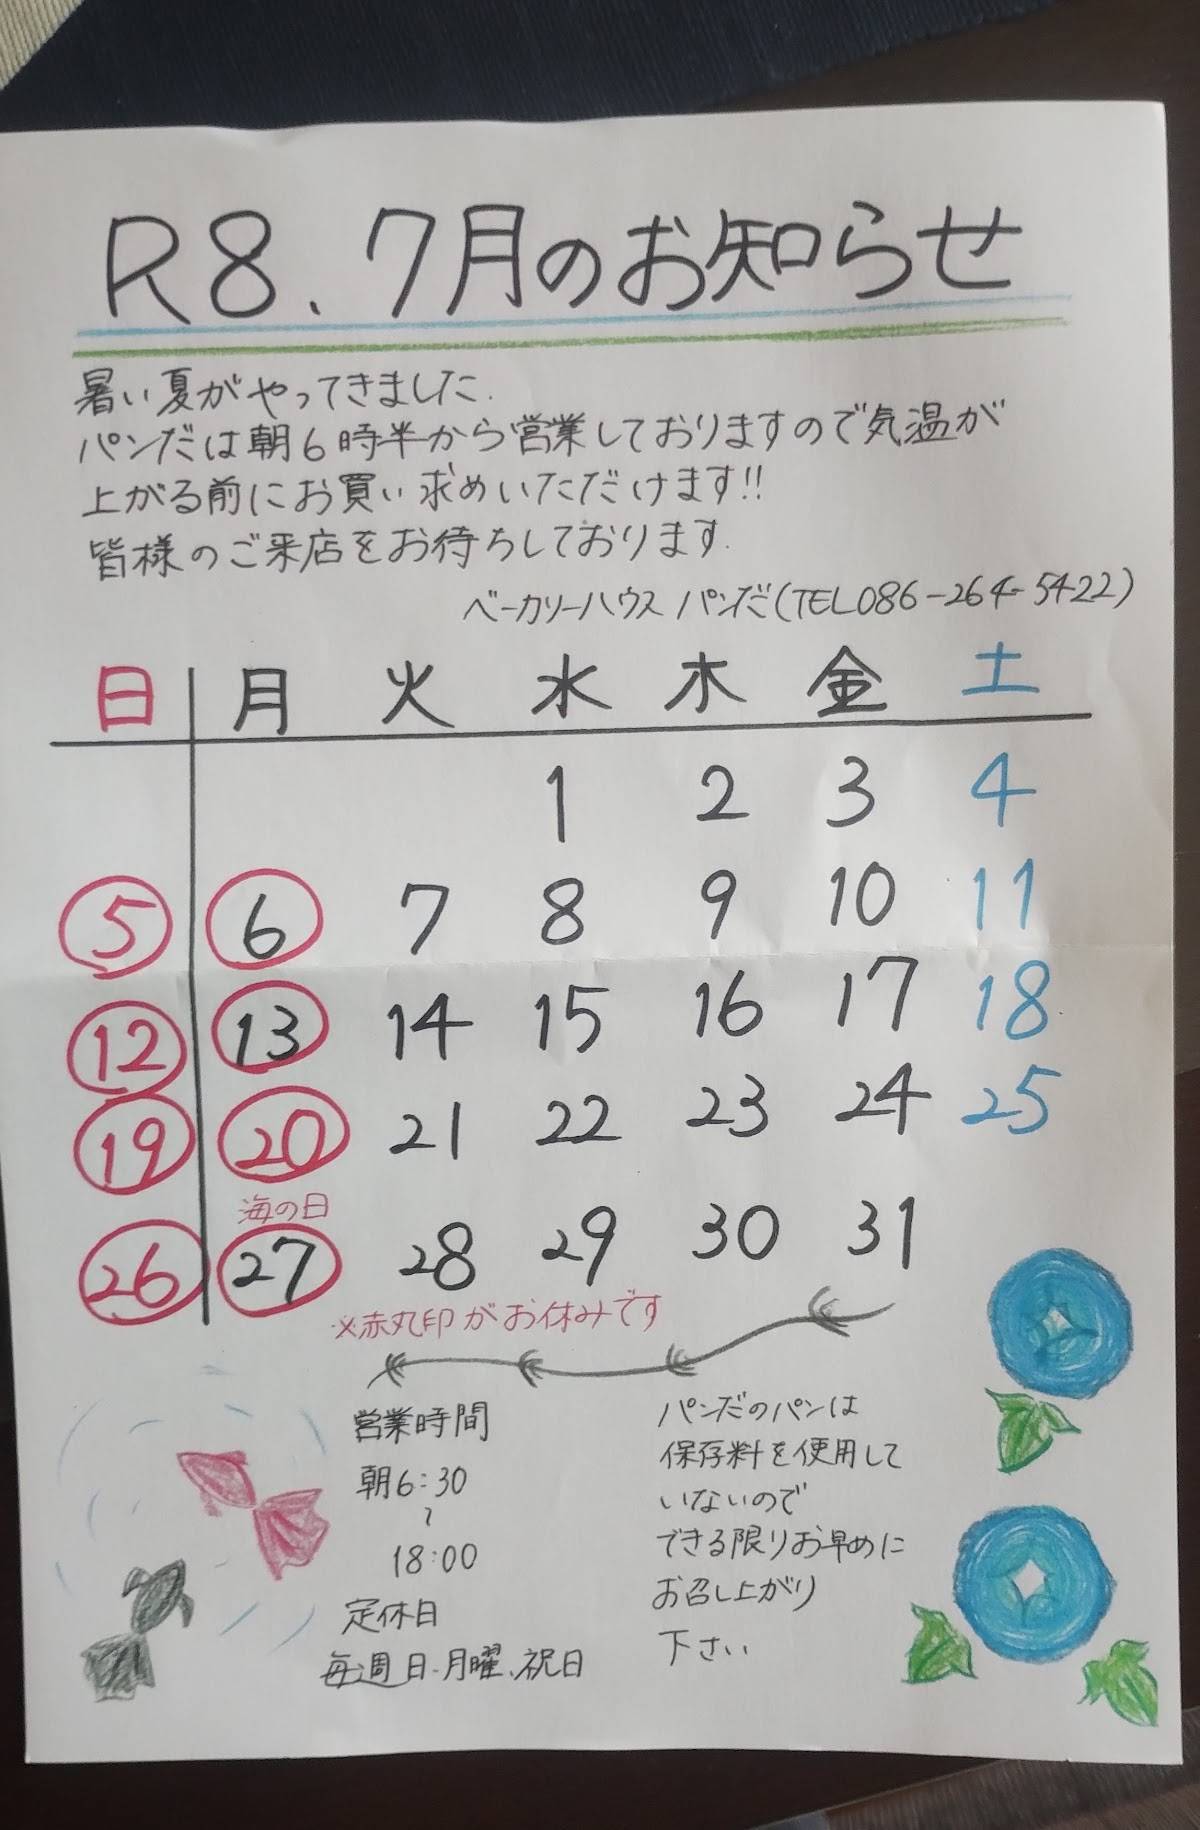 R8.7月のお知らせ
暑い夏がやってきました.
パンだは朝6時半から営業しておりますので気温が
上がる前にお買い求めいただけます!!
皆様のご来店をお待ちしております.
ベーカリーハウス パンだ(TEL086-264-5422)
日 月 火 水 木 金 土
1 2 3 4
5 6 7 8 9 10 11
12 13 14 15 16 17 18
19 20 21 22 23 24 25
海の日
26 27 28 29 30 31
※赤丸印がお休みです
営業時間
朝6:30
~
18:00
定休日
毎週日.月曜、祝日
パンだのパンは
保存料を使用して
いないので
できる限りお早めに
お召し上がり
下さい